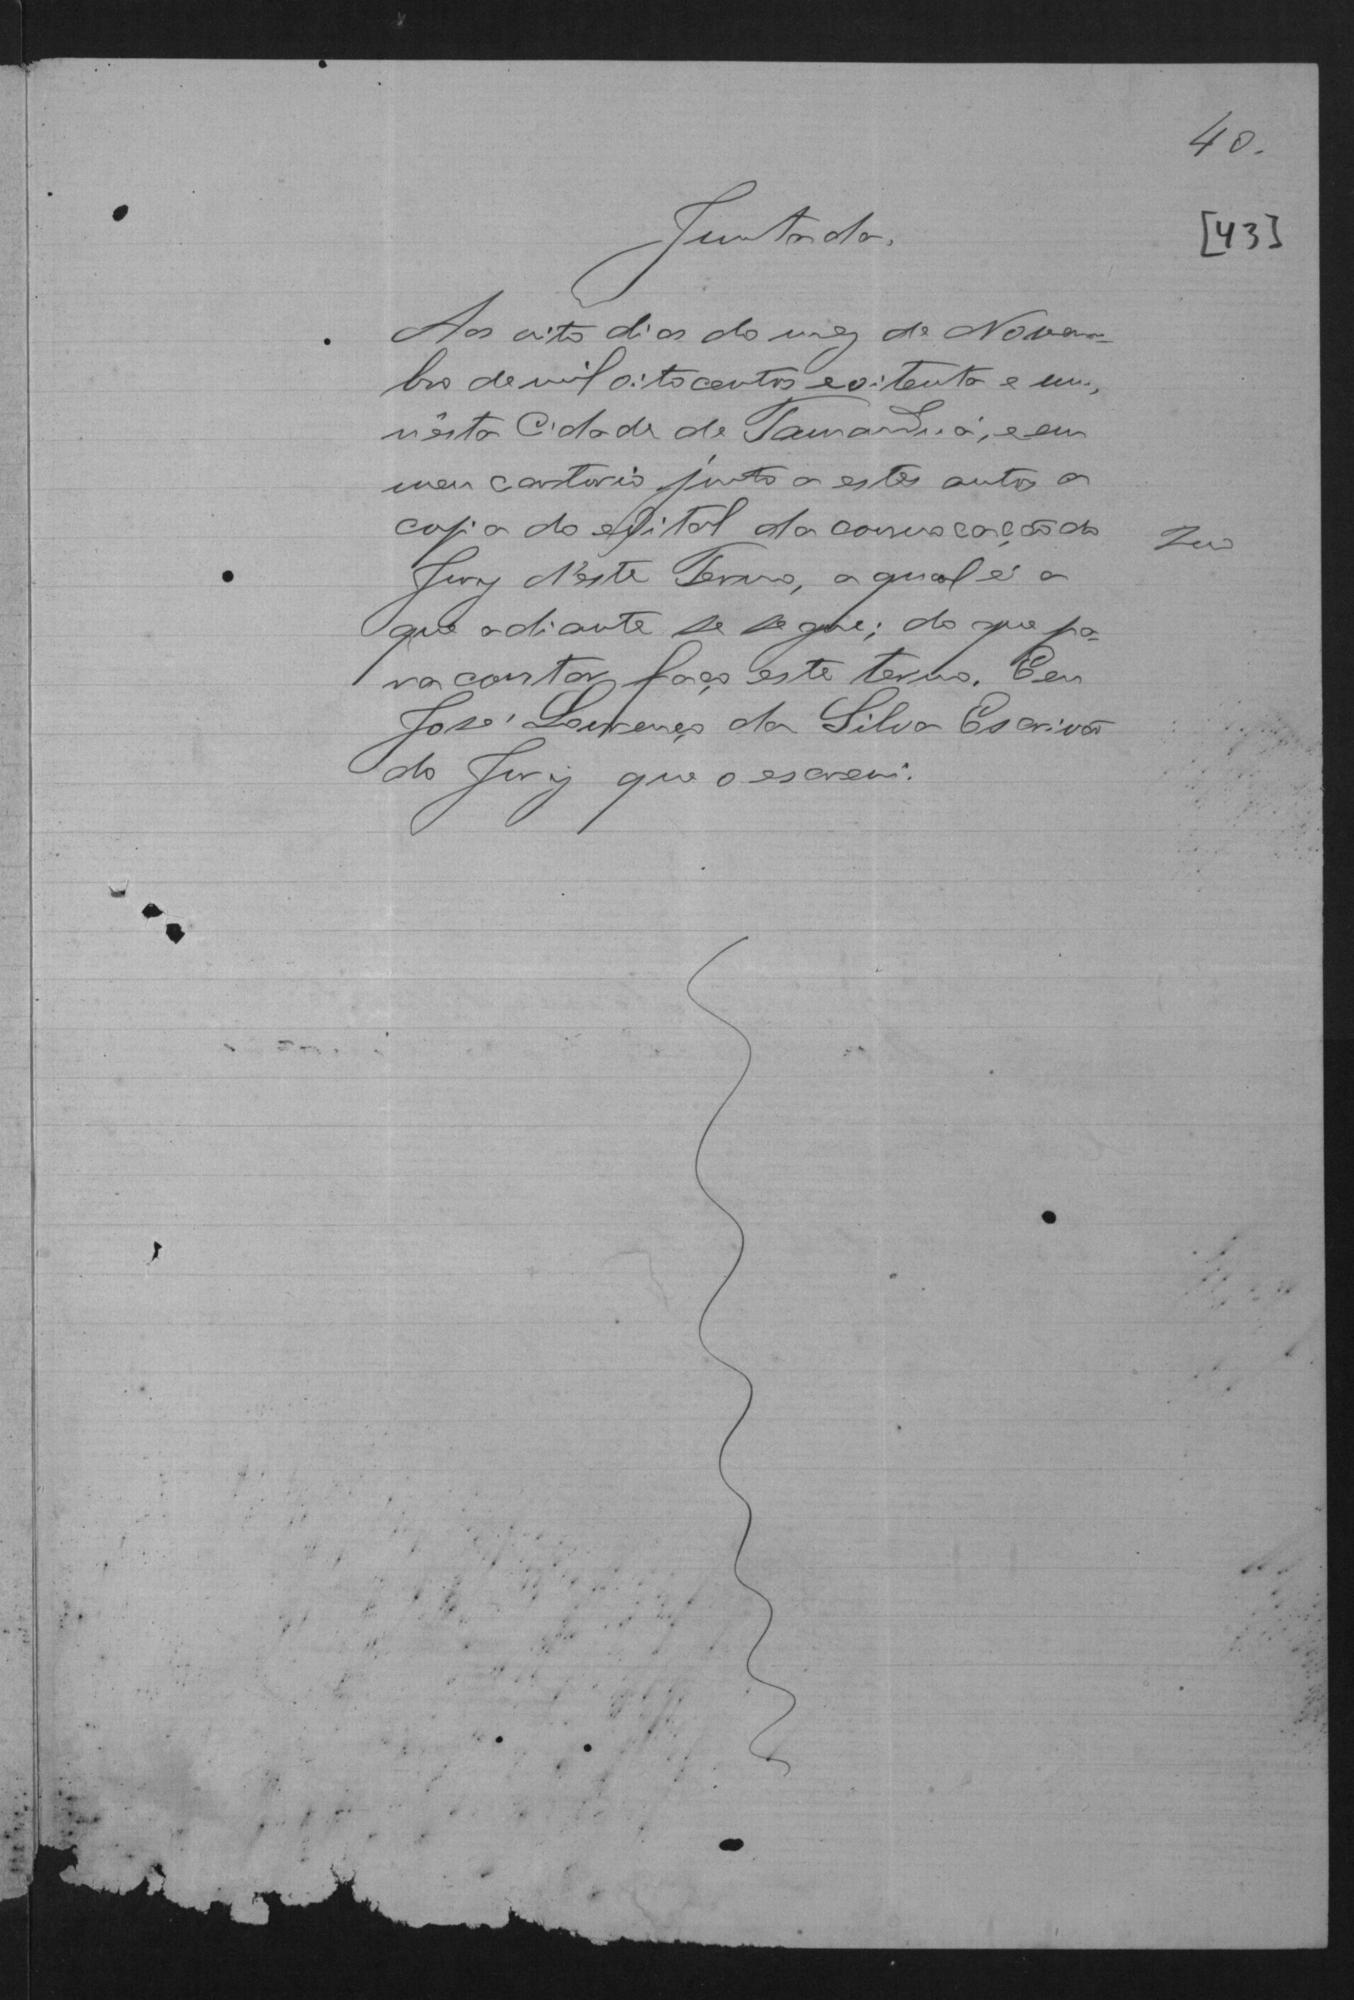 40.
[43]
Juntada.
Aos oito dias do mez de Novem-
bro de mil oitocentos e oitenta e um,
nésta Cidade de Tamanduá, e em
meu cartorio junto a estes autos a
copia do edital da convocação do
Jury d'este Termo, a qual é a
que adiante se segue; do que pa-
ra constar faço este termo. Eeu
José Lourenço da Silva Escrivão
do Jury que o escrevi.